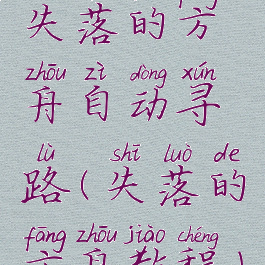 失落的方
zhōu zì dòng xún
舟自动寻
lù shī luò de
路(失落的
fāng zhōu jiào chéng
方舟教程)